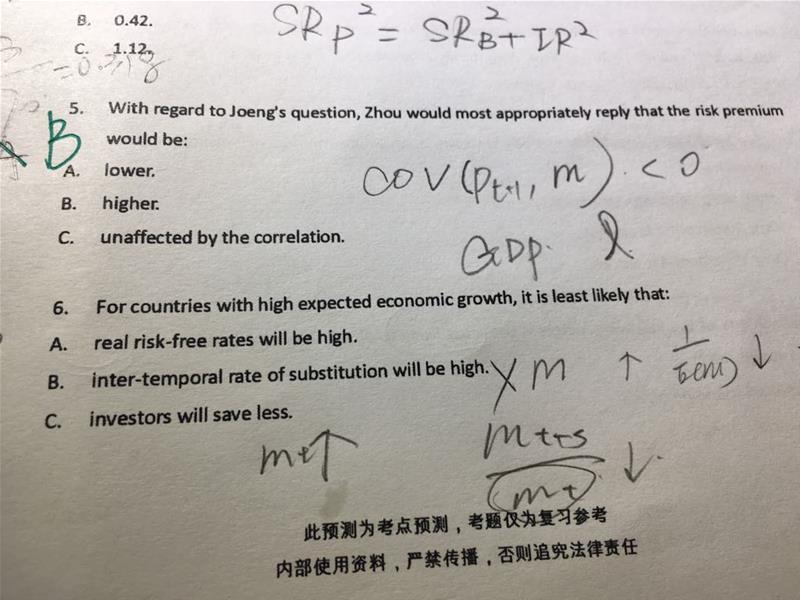 B. 0.42.
SRp² = SR²B + IR²
C. 1.12.
5. With regard to Joeng's question, Zhou would most appropriately reply that the risk premium
would be:
B
A. lower.
COV(Pt+1, m) < 0
B. higher.
C. unaffected by the correlation.
GDP.
6. For countries with high expected economic growth, it is least likely that:
A. real risk-free rates will be high.
B. inter-temporal rate of substitution will be high. X m ↑ 1/E(m) ↓
C. investors will save less.
mt ↑
mt+s/mt ↓
此预测为考点预测，考题仅为复习参考
内部使用资料，严禁传播，否则追究法律责任